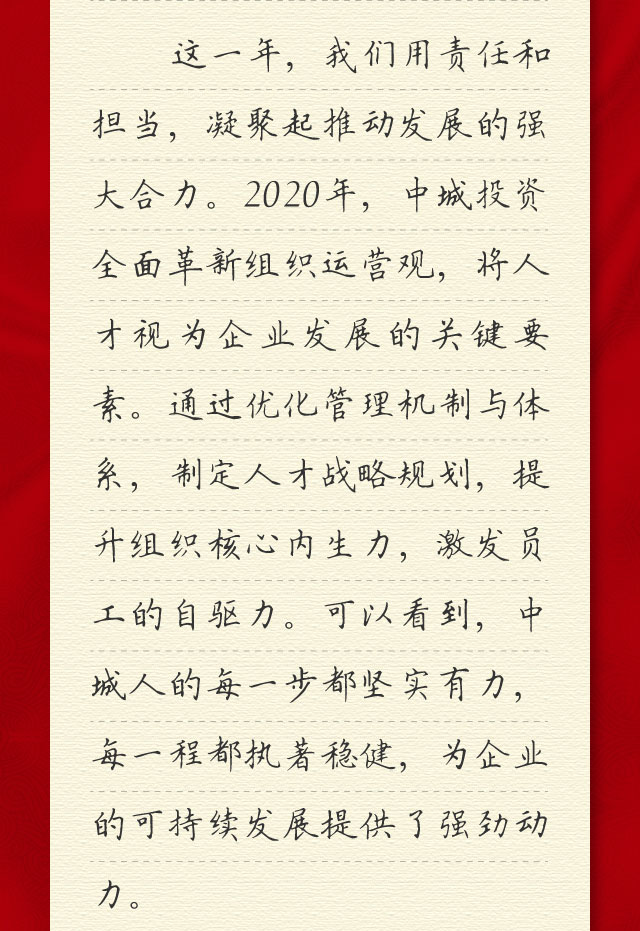 这一年，我们用责任和
担当，凝聚起推动发展的强
大合力。2020年，中城投资
全面革新组织运营观，将人
才视为企业发展的关键要
素。通过优化管理机制与体
系，制定人才战略规划，提
升组织核心内生力，激发员
工的自驱力。可以看到，中
城人的每一步都坚实有力，
每一程都执著稳健，为企业
的可持续发展提供了强劲动
力。